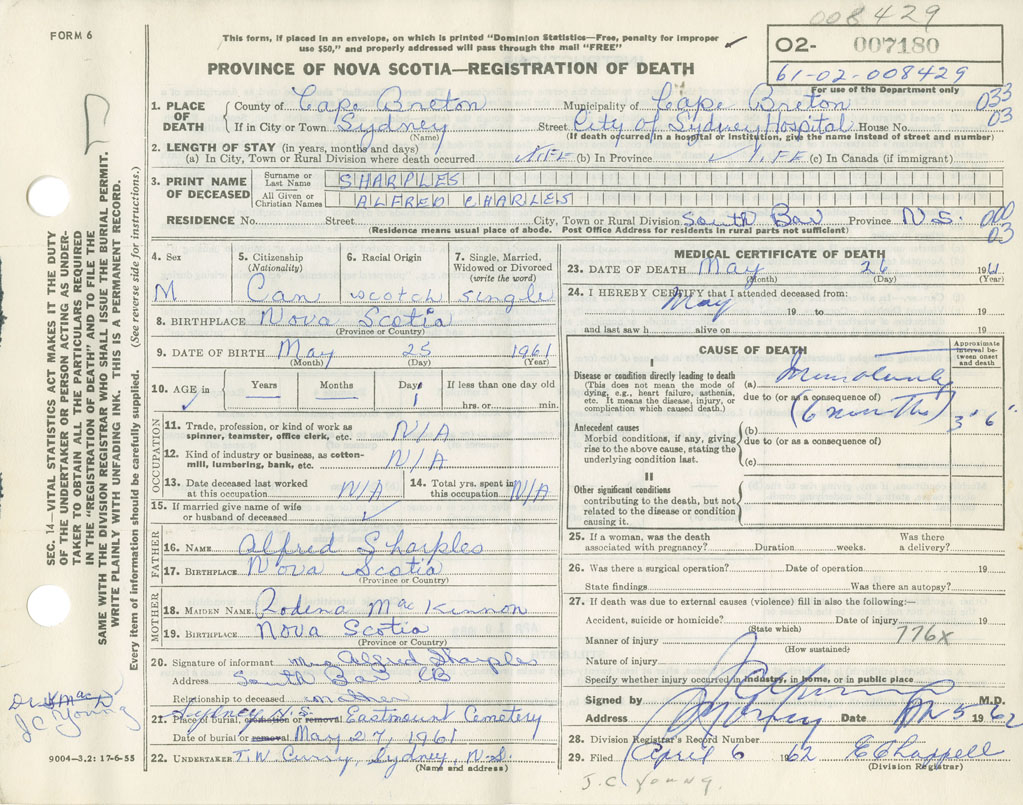 008429
FORM 6
This form, if placed in an envelope, on which is printed "Dominion Statistics—Free, penalty for improper
use $50," and properly addressed will pass through the mail "FREE"
02- 007180
61-02-008429
For use of the Department only
PROVINCE OF NOVA SCOTIA—REGISTRATION OF DEATH
1. PLACE OF DEATH
County of Cape Breton Municipality of Cape Breton 033
If in City or Town Sydney Street City of Sydney Hospital House No. 03
(Name) (If death occurred in a hospital or institution, give the name instead of street and number)
2. LENGTH OF STAY (in years, months and days)
(a) In City, Town or Rural Division where death occurred LIFE (b) In Province LIFE (c) In Canada (if immigrant)
3. PRINT NAME OF DECEASED
Surname or Last Name SHARPLES
All Given or Christian Names ALFRED CHARLES
RESIDENCE No. Street City, Town or Rural Division South Bar Province N.S. 000
03
(Residence means usual place of abode. Post Office Address for residents in rural parts not sufficient)
4. Sex 5. Citizenship (Nationality) 6. Racial Origin 7. Single, Married, Widowed or Divorced (write the word)
M Can Scotch Single
8. BIRTHPLACE Nova Scotia
(Province or Country)
9. DATE OF BIRTH May 25 1961
(Month) (Day) (Year)
10. AGE in Years Months Days If less than one day old
1 hrs. or min.
OCCUPATION
11. Trade, profession, or kind of work as
spinner, teamster, office clerk, etc. N/A
12. Kind of industry or business, as cotton-
mill, lumbering, bank, etc. N/A
13. Date deceased last worked at this occupation N/A 14. Total yrs. spent in this occupation N/A
15. If married give name of wife
or husband of deceased
FATHER
16. NAME Alfred Sharples
17. BIRTHPLACE Nova Scotia
(Province or Country)
MOTHER
18. MAIDEN NAME Rodena MacKinnon
19. BIRTHPLACE Nova Scotia
(Province or Country)
20. Signature of informant Mrs Alfred Sharples
Address South Bar CB
Relationship to deceased mother
Sydney N.S.
21. Place of burial, cremation or removal Eastmount Cemetery
Date of burial or removal May 27, 1961
22. UNDERTAKER T.W. Curry, Sydney, N.S.
(Name and address)
MEDICAL CERTIFICATE OF DEATH
23. DATE OF DEATH May 26 1961
(Month) (Day) (Year)
24. I HEREBY CERTIFY that I attended deceased from:
May 19 to 19
and last saw h alive on 19
CAUSE OF DEATH
Approximate interval between onset and death
I
Disease or condition directly leading to death
(This does not mean the mode of
dying, e.g., heart failure, asthenia,
etc. It means the disease, injury, or
complication which caused death.)
(a)
due to (or as a consequence of)
(6 months) 3" 6"
Antecedent causes
Morbid conditions, if any, giving
rise to the above cause, stating the
underlying condition last.
(b)
due to (or as a consequence of)
(c)
II
Other significant conditions
contributing to the death, but not
related to the disease or condition
causing it.
25. If a woman, was the death Was there
associated with pregnancy? Duration weeks. a delivery?
26. Was there a surgical operation? Date of operation 19
State findings Was there an autopsy?
27. If death was due to external causes (violence) fill in also the following:—
Accident, suicide or homicide? Date of injury 19
(State which)
Manner of injury 776x
(How sustained)
Nature of injury
Specify whether injury occurred in industry, in home, or in public place
Signed by J C Young M.D.
Address Sydney Date 5 1962
28. Division Registrar's Record Number
29. Filed April 6 1962 E Chappell
(Division Registrar)
J.C. Young.
SEC. 14—VITAL STATISTICS ACT MAKES IT THE DUTY
OF THE UNDERTAKER OR PERSON ACTING AS UNDER-
TAKER TO OBTAIN ALL THE PARTICULARS REQUIRED
IN THE "REGISTRATION OF DEATH" AND TO FILE THE
SAME WITH THE DIVISION REGISTRAR WHO SHALL ISSUE THE BURIAL PERMIT.
WRITE PLAINLY WITH UNFADING INK. THIS IS A PERMANENT RECORD.
Every item of information should be carefully supplied. (See reverse side for instructions.)
J C Young
9004—3.2: 17-6-55